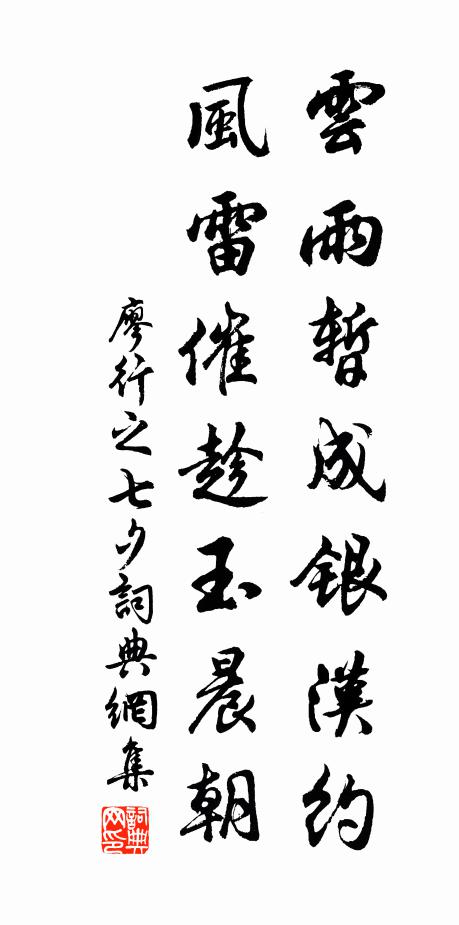 雲雨暫成銀漢約
風雷催趁玉晨朝
廖行之七夕詞典網集
詞典网印